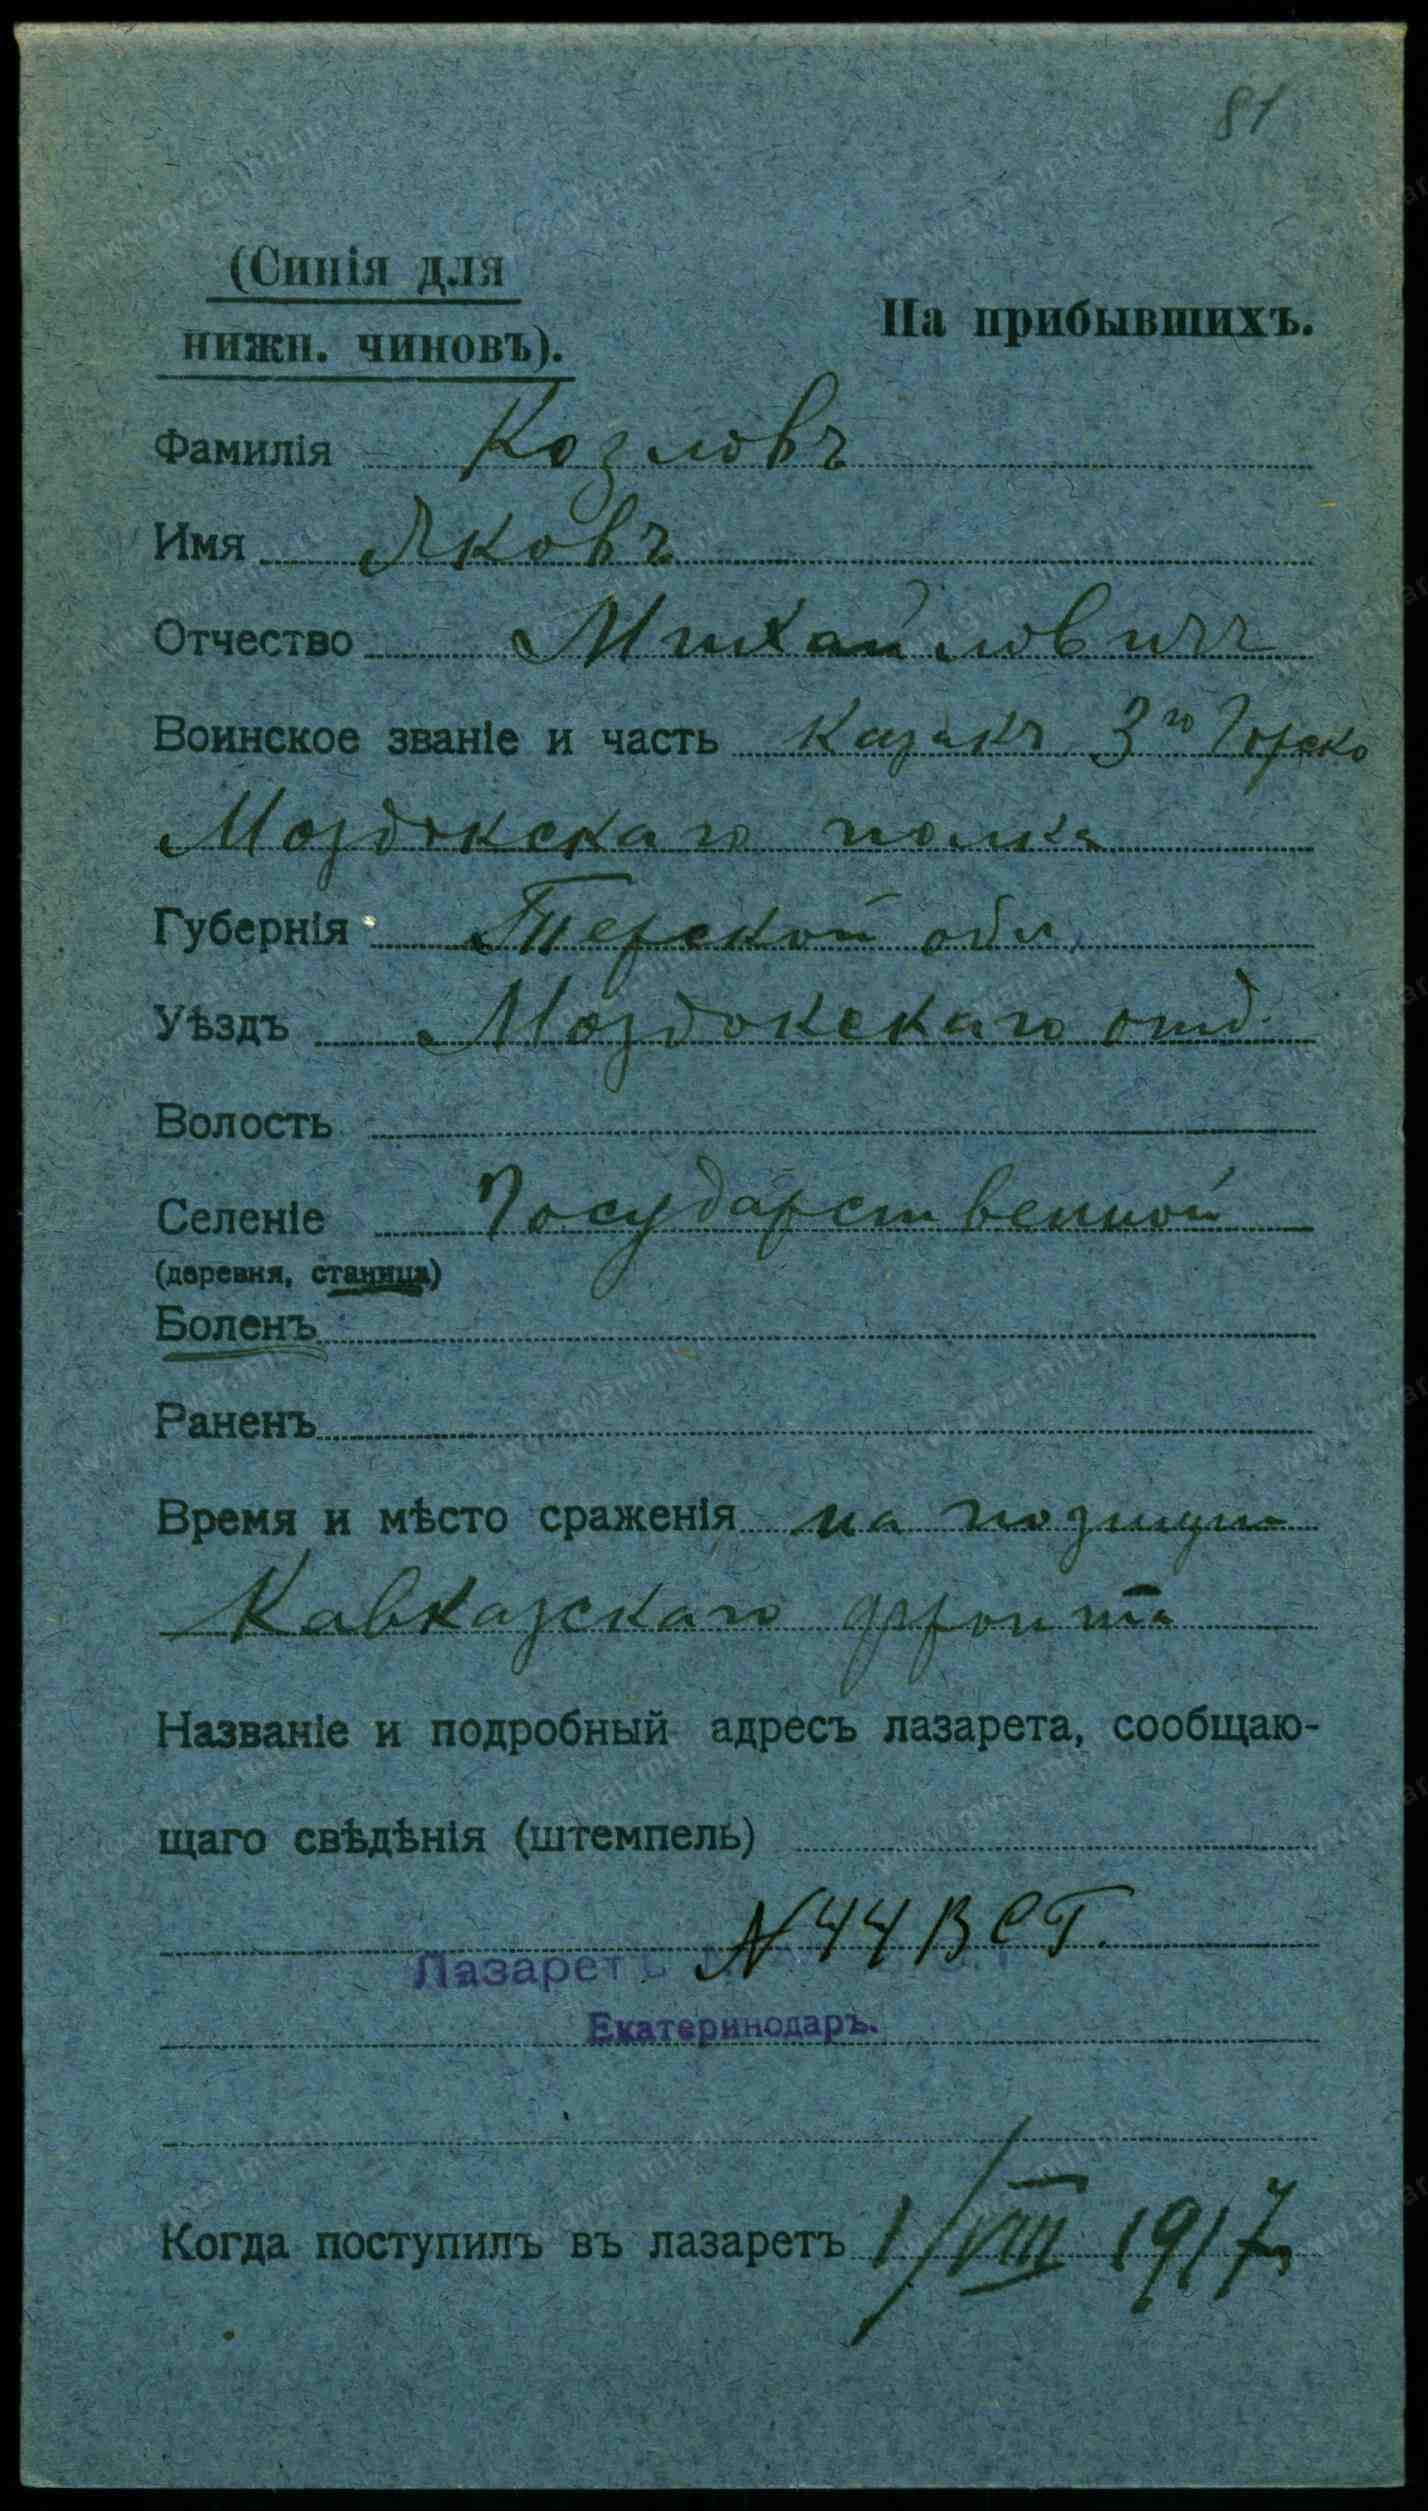 81
(Синія для
нижн. чиновъ).
На прибывшихъ.
Фамилія Козловъ
Имя Яковъ
Отчество Михайловичъ
Воинское званіе и часть Казакъ 3го Горско
Моздокскаго полка
Губернія Терской обл.
Уѣздъ Моздокскаго отд.
Волость
Селеніе Государственной
(деревня, станица)
Боленъ
Раненъ
Время и мѣсто сраженія на позиции
Кавказскаго фронта
Названіе и подробный адресъ лазарета, сообщаю-
щаго свѣдѣнія (штемпель)
Лазаретъ N 44 ВСГ.
Екатеринодаръ.
Когда поступилъ въ лазаретъ 1/VIII 1917